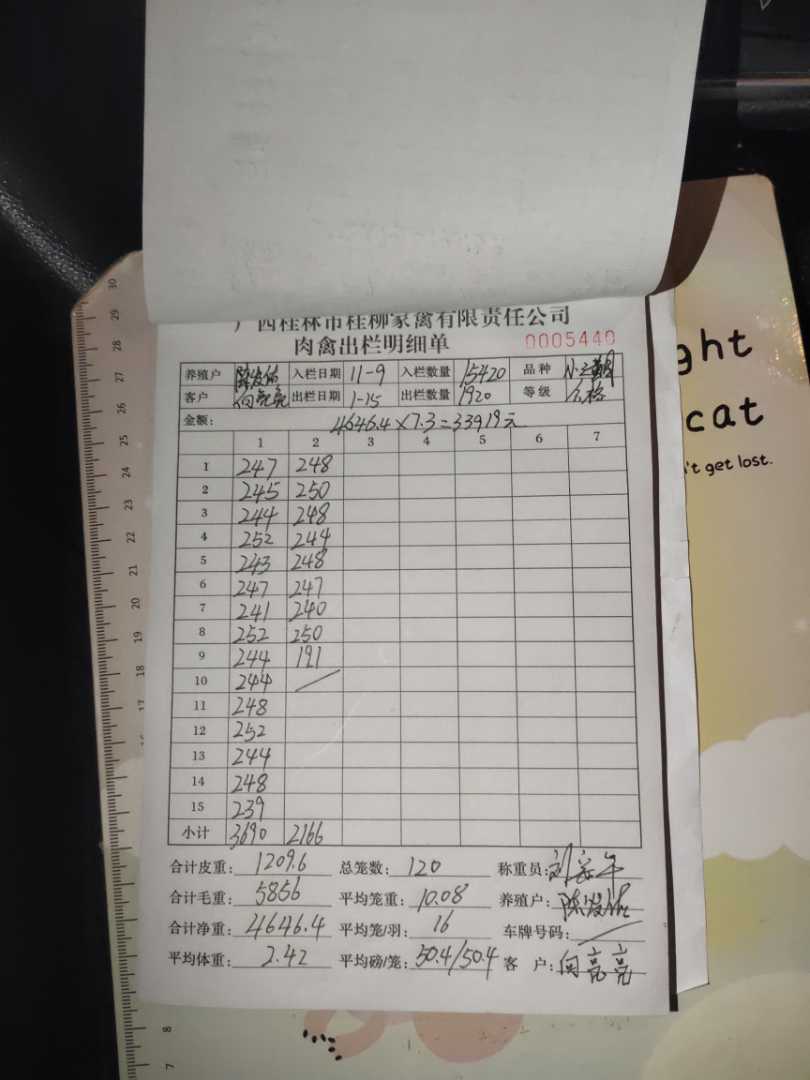 广西桂林市桂柳家禽有限责任公司
肉禽出栏明细单 0005440
养殖户 入栏日期 11-9 入栏数量 15420 品种
客户 向亮亮 出栏日期 1-15 出栏数量 1920 等级 合格
金额: 4646.4×7.3=33919元
1 2 3 4 5 6 7
1 247 248
2 245 250
3 244 248
4 252 244
5 243 248
6 247 247
7 241 240
8 252 250
9 244 191
10 244 /
11 248
12 252
13 244
14 248
15 239
小计 3690 2166
合计皮重: 1209.6 总笼数: 120 称重员:
合计毛重: 5856 平均笼重: 10.08 养殖户: 陈发
合计净重: 4646.4 平均笼/羽: 16 车牌号码: /
平均体重: 2.42 平均磅/笼: 50.4/50.4 客 户: 向亮亮
ght
cat
't get lost.
30
29
28
27
26
25
24
23
22
21
20
19
18
17
8
7